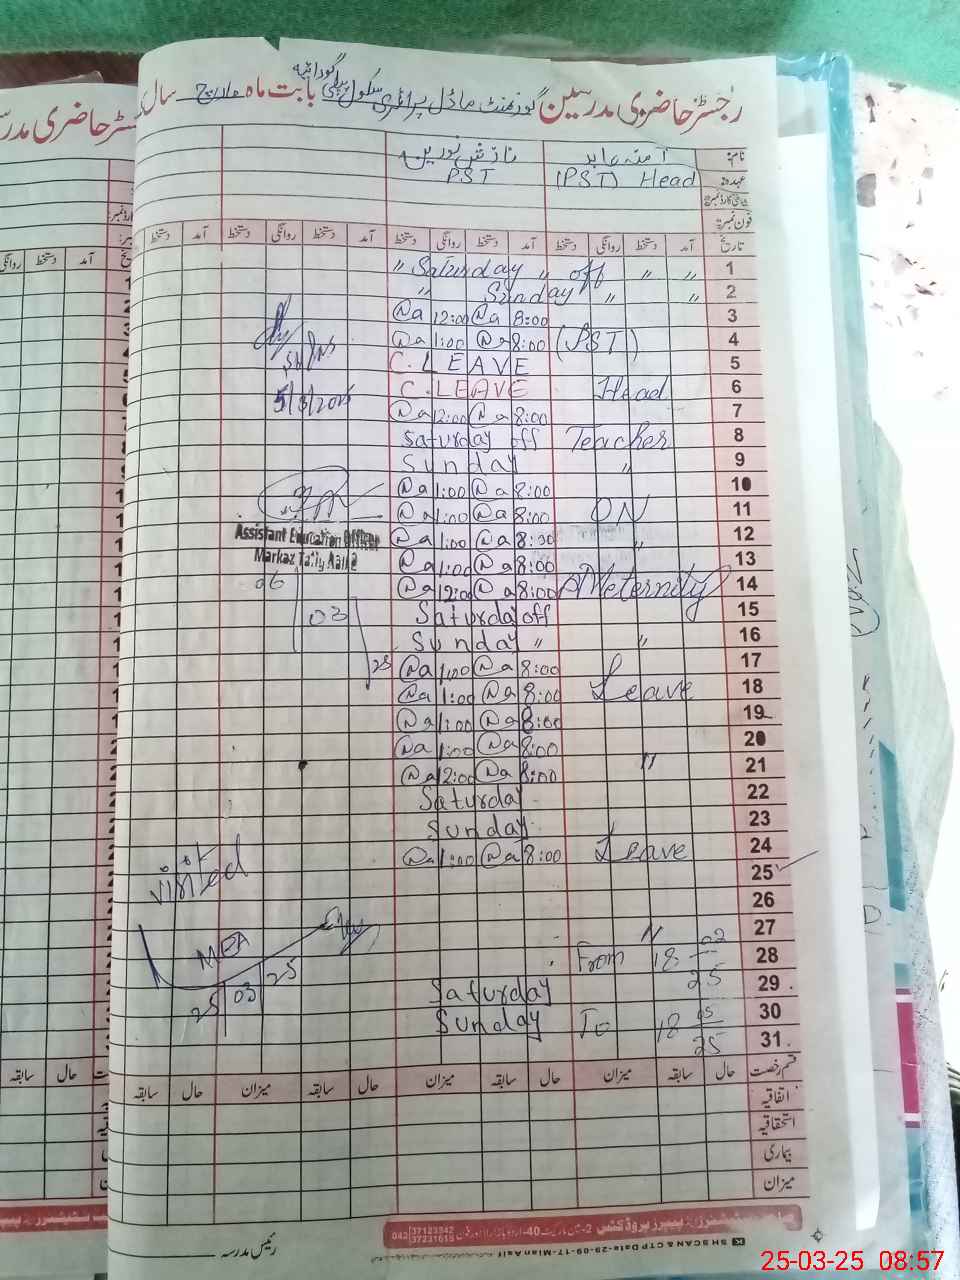 رجسٹر حاضری مدرسین گورنمنٹ ماڈل پرائمری سکول بابت ماہ مارچ سال
نام: آمنہ عابد نازش نورین
عہدہ: (PST) Head PST
شناختی کارڈ نمبر
فون نمبر:
تاریخ آمد دستخط روانگی دستخط آمد دستخط روانگی دستخط آمد دستخط روانگی دستخط آمد دستخط
1 " " off " Saturday "
2 " " Sunday "
3 8:00 12:00
4 (PST) 8:00 1:00
5 C.LEAVE
6 Head C.LEAVE
7 8:00 12:00
8 Teacher Saturday off
9 " Sunday
10 8:00 1:00
11 ON 8:00 1:00
12 " 8:00 1:00
13 8:00 1:00
14 Meternity 8:00 12:00
15 Saturday off
16 " Sunday "
17 8:00 1:00
18 Leave 8:00 1:00
19 8:00 1:00
20 8:00 1:00
21 " 8:00 12:00
22 Saturday
23 Sunday
24 Leave 8:00 1:00
25
26
27 "
28 From 18 02 25
29 Saturday
30 Sunday To 18 05 25
31
5/3/2025
Assistant Education Officer
Markaz
06 03 25
visited
MEA
25 03 25
قسم رخصت حال سابقہ میزان حال سابقہ میزان حال سابقہ میزان حال سابقہ
اتفاقیہ
استحقاقیہ
بیماری
میزان
042 37123342
37231618
SH SCAN & CTP Date-29-09-17-Mian Asif
رئیس مدرسہ
25-03-25 08:57